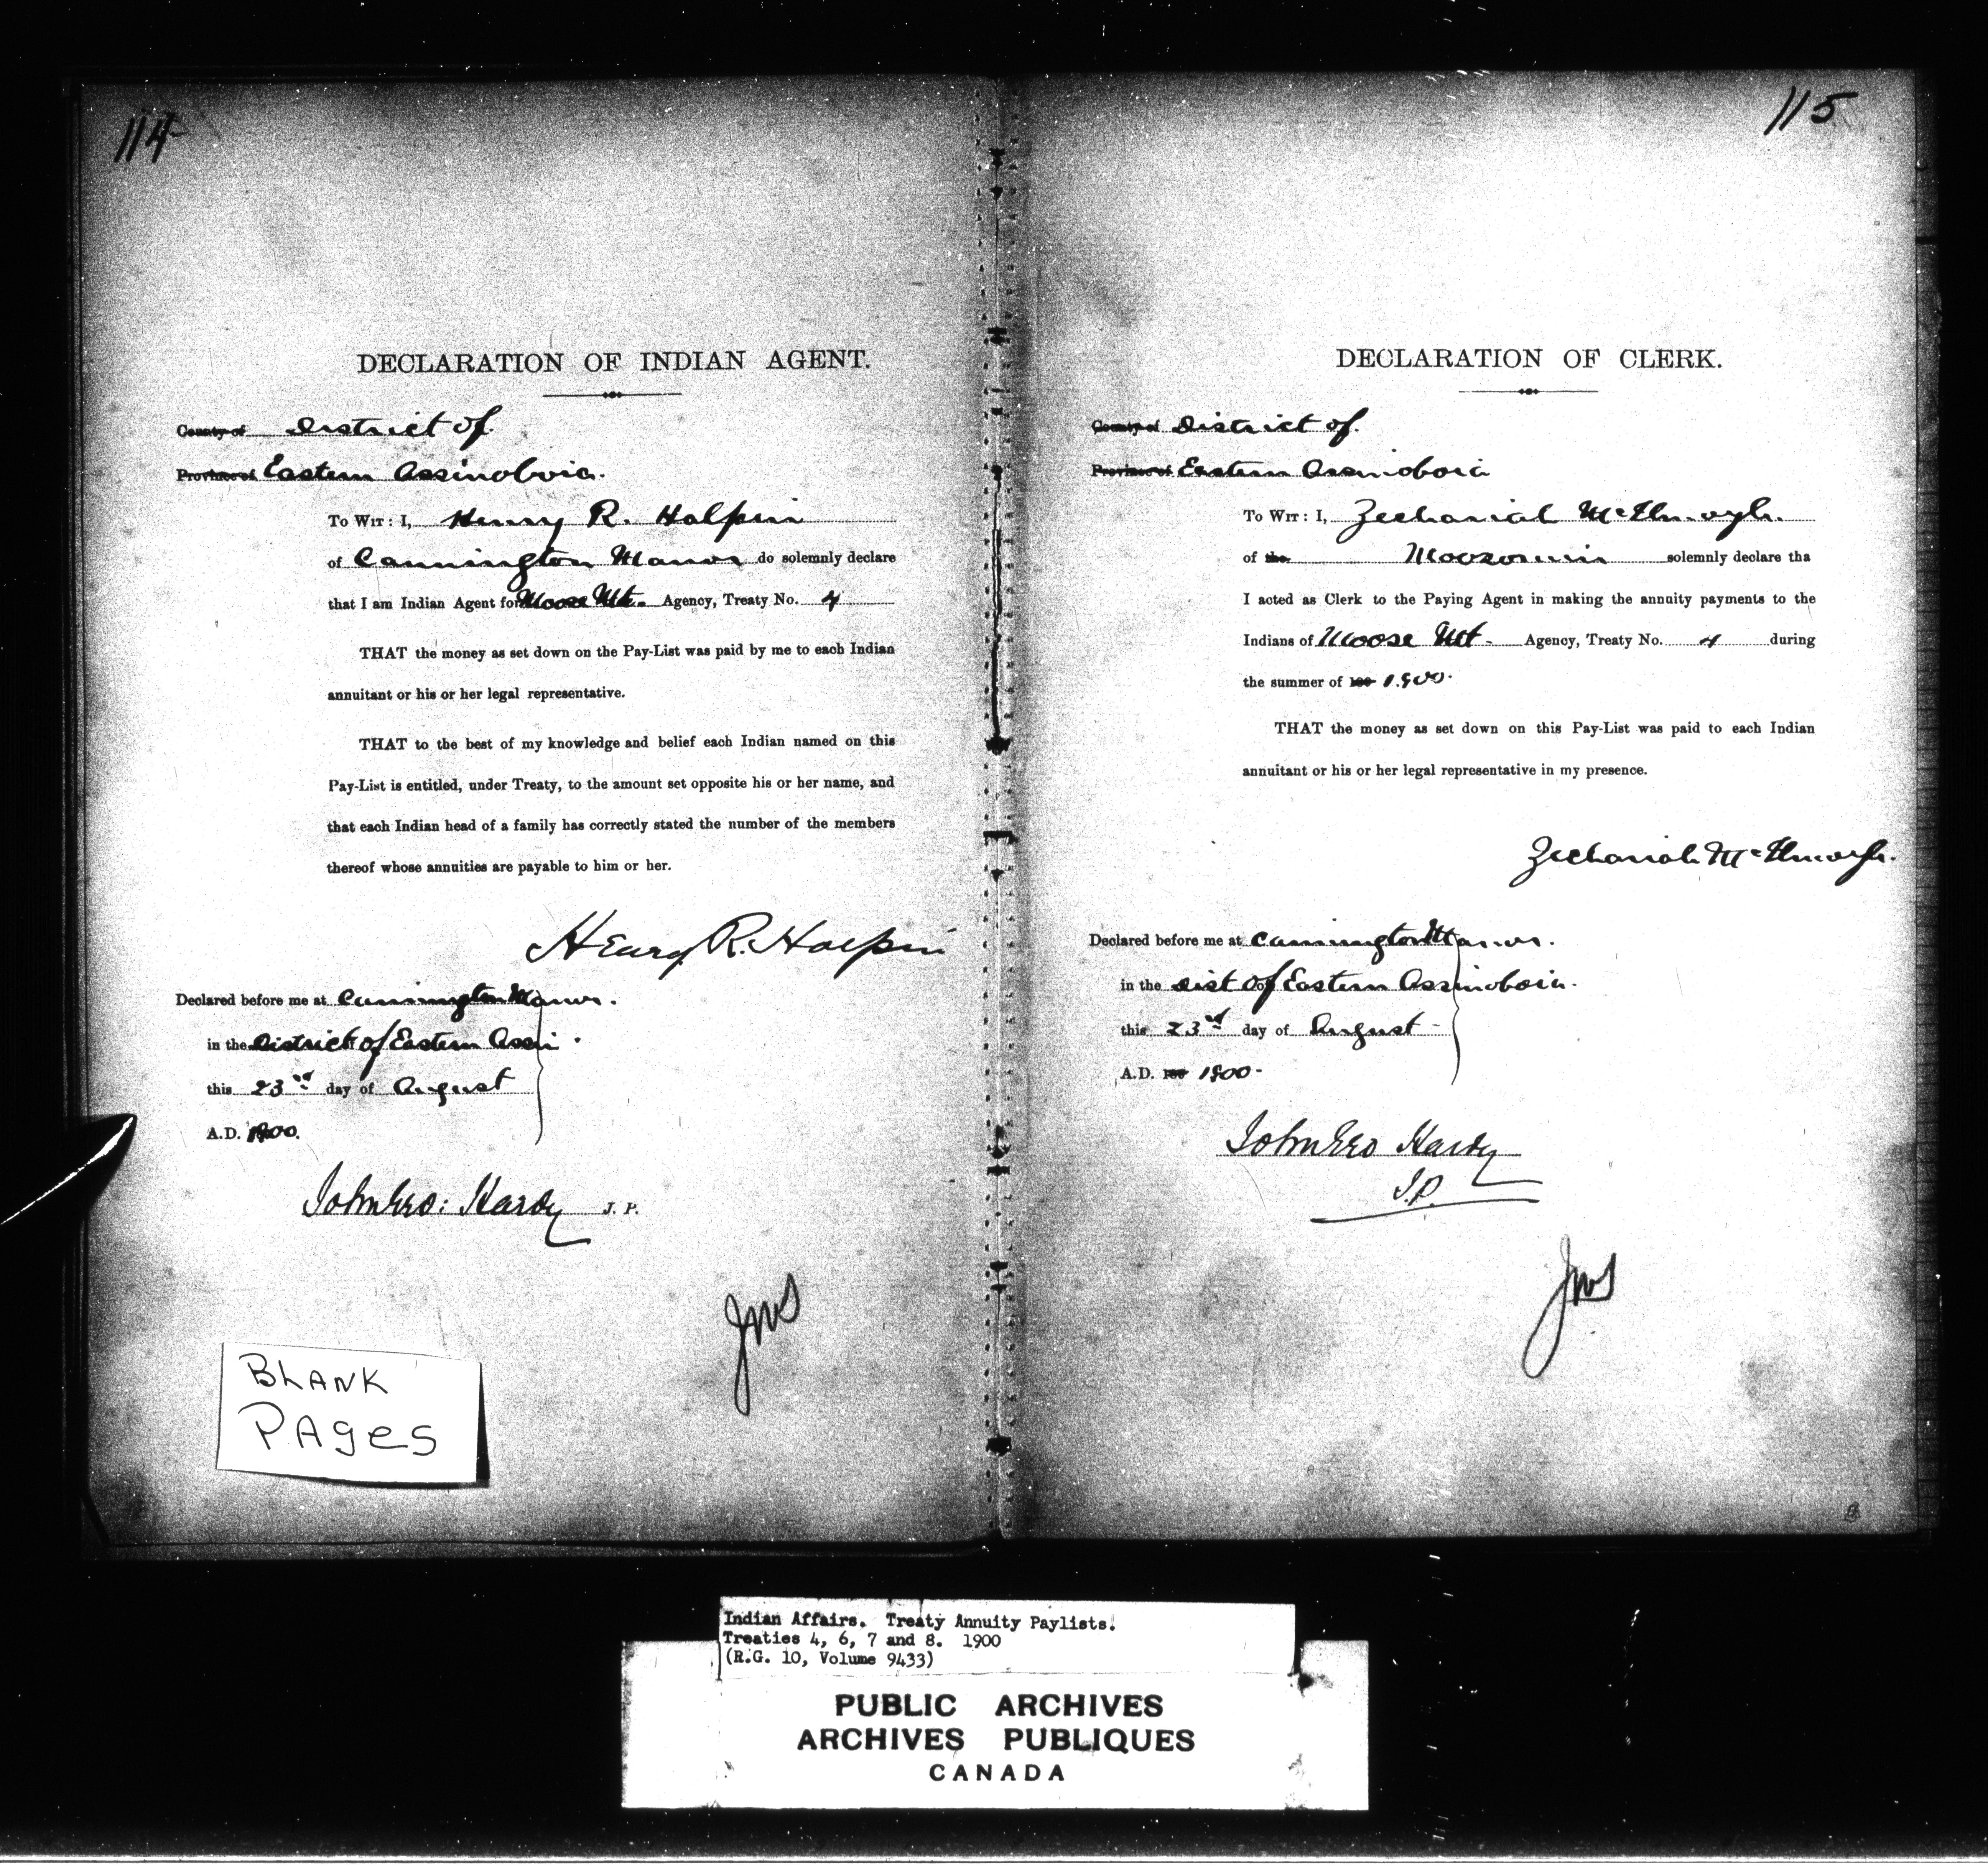 114
DECLARATION OF INDIAN AGENT.
County of District of
Province of Eastern Assinoboia.
To Wit: I, Henry R. Halpin
of Cannington Manor do solemnly declare
that I am Indian Agent for Moose Mt. Agency, Treaty No. 4
THAT the money as set down on the Pay-List was paid by me to each Indian
annuitant or his or her legal representative.
THAT to the best of my knowledge and belief each Indian named on this
Pay-List is entitled, under Treaty, to the amount set opposite his or her name, and
that each Indian head of a family has correctly stated the number of the members
thereof whose annuities are payable to him or her.
Henry R. Halpin
Declared before me at Cannington Manor.
in the District of Eastern Assi.
this 23rd day of August
A.D. 1900.
John Geo: Hardy J. P.
JWS
BLANK
PAges
115
DECLARATION OF CLERK.
County of District of.
Province of Eastern Assinoboia
To Wit: I, Zechariah
of the Moosomin solemnly declare tha
I acted as Clerk to the Paying Agent in making the annuity payments to the
Indians of Moose Mt - Agency, Treaty No. 4 during
the summer of 189 1900.
THAT the money as set down on this Pay-List was paid to each Indian
annuitant or his or her legal representative in my presence.
Zechariah
Declared before me at Cannington Manor.
in the Dist of Eastern Assinoboia.
this 23rd day of August -
A.D. 189 1900-
John Geo Hardy
J.P.
JWS
Indian Affairs. Treaty Annuity Paylists.
Treaties 4, 6, 7 and 8. 1900
(R.G. 10, Volume 9433)
PUBLIC ARCHIVES
ARCHIVES PUBLIQUES
CANADA